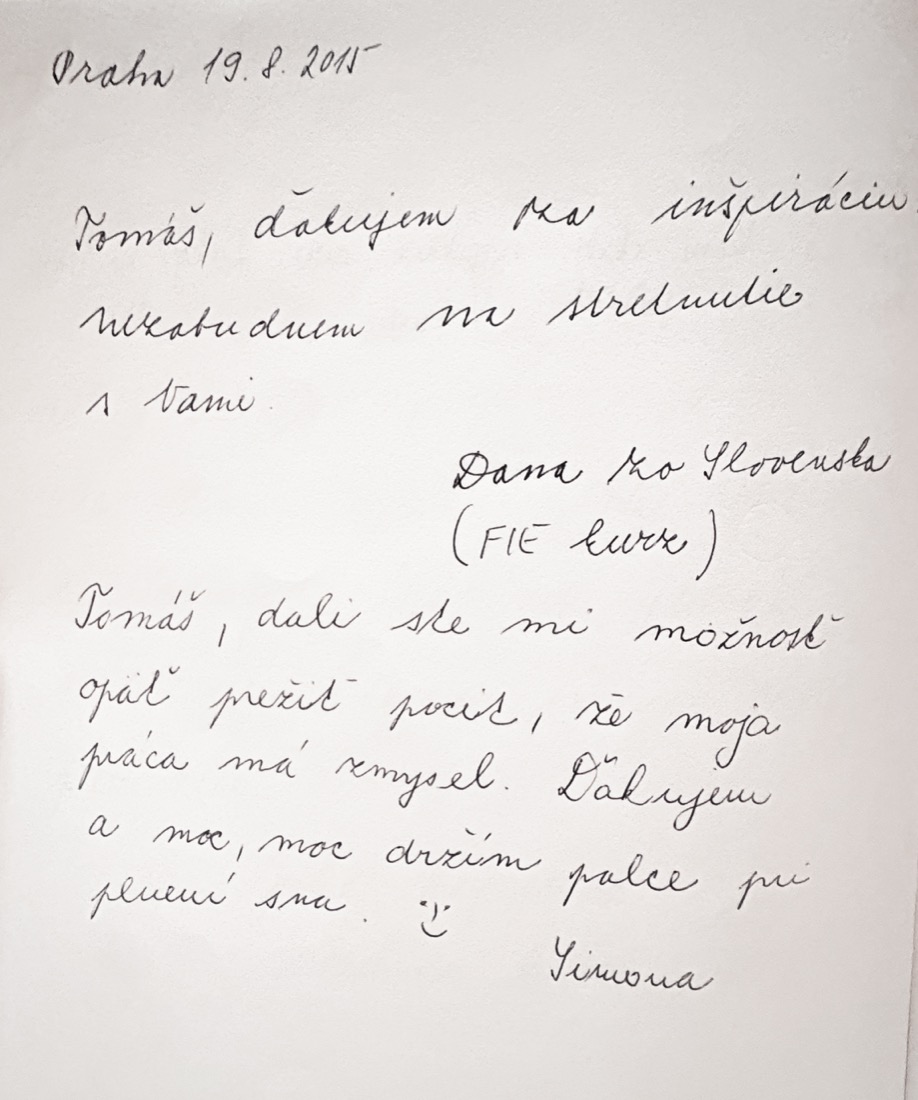 Praha 19. 8. 2015
Tomáš, ďakujem za inšpiráciu
nezabudnem na stretnutie
s Vami.
Dana zo Slovenska
(FIE kurz)
Tomáš, dali ste mi možnosť
opäť prežiť pocit, že moja
práca má zmysel. Ďakujem
a moc, moc držím palce pri
plnení sna. :)
Simona